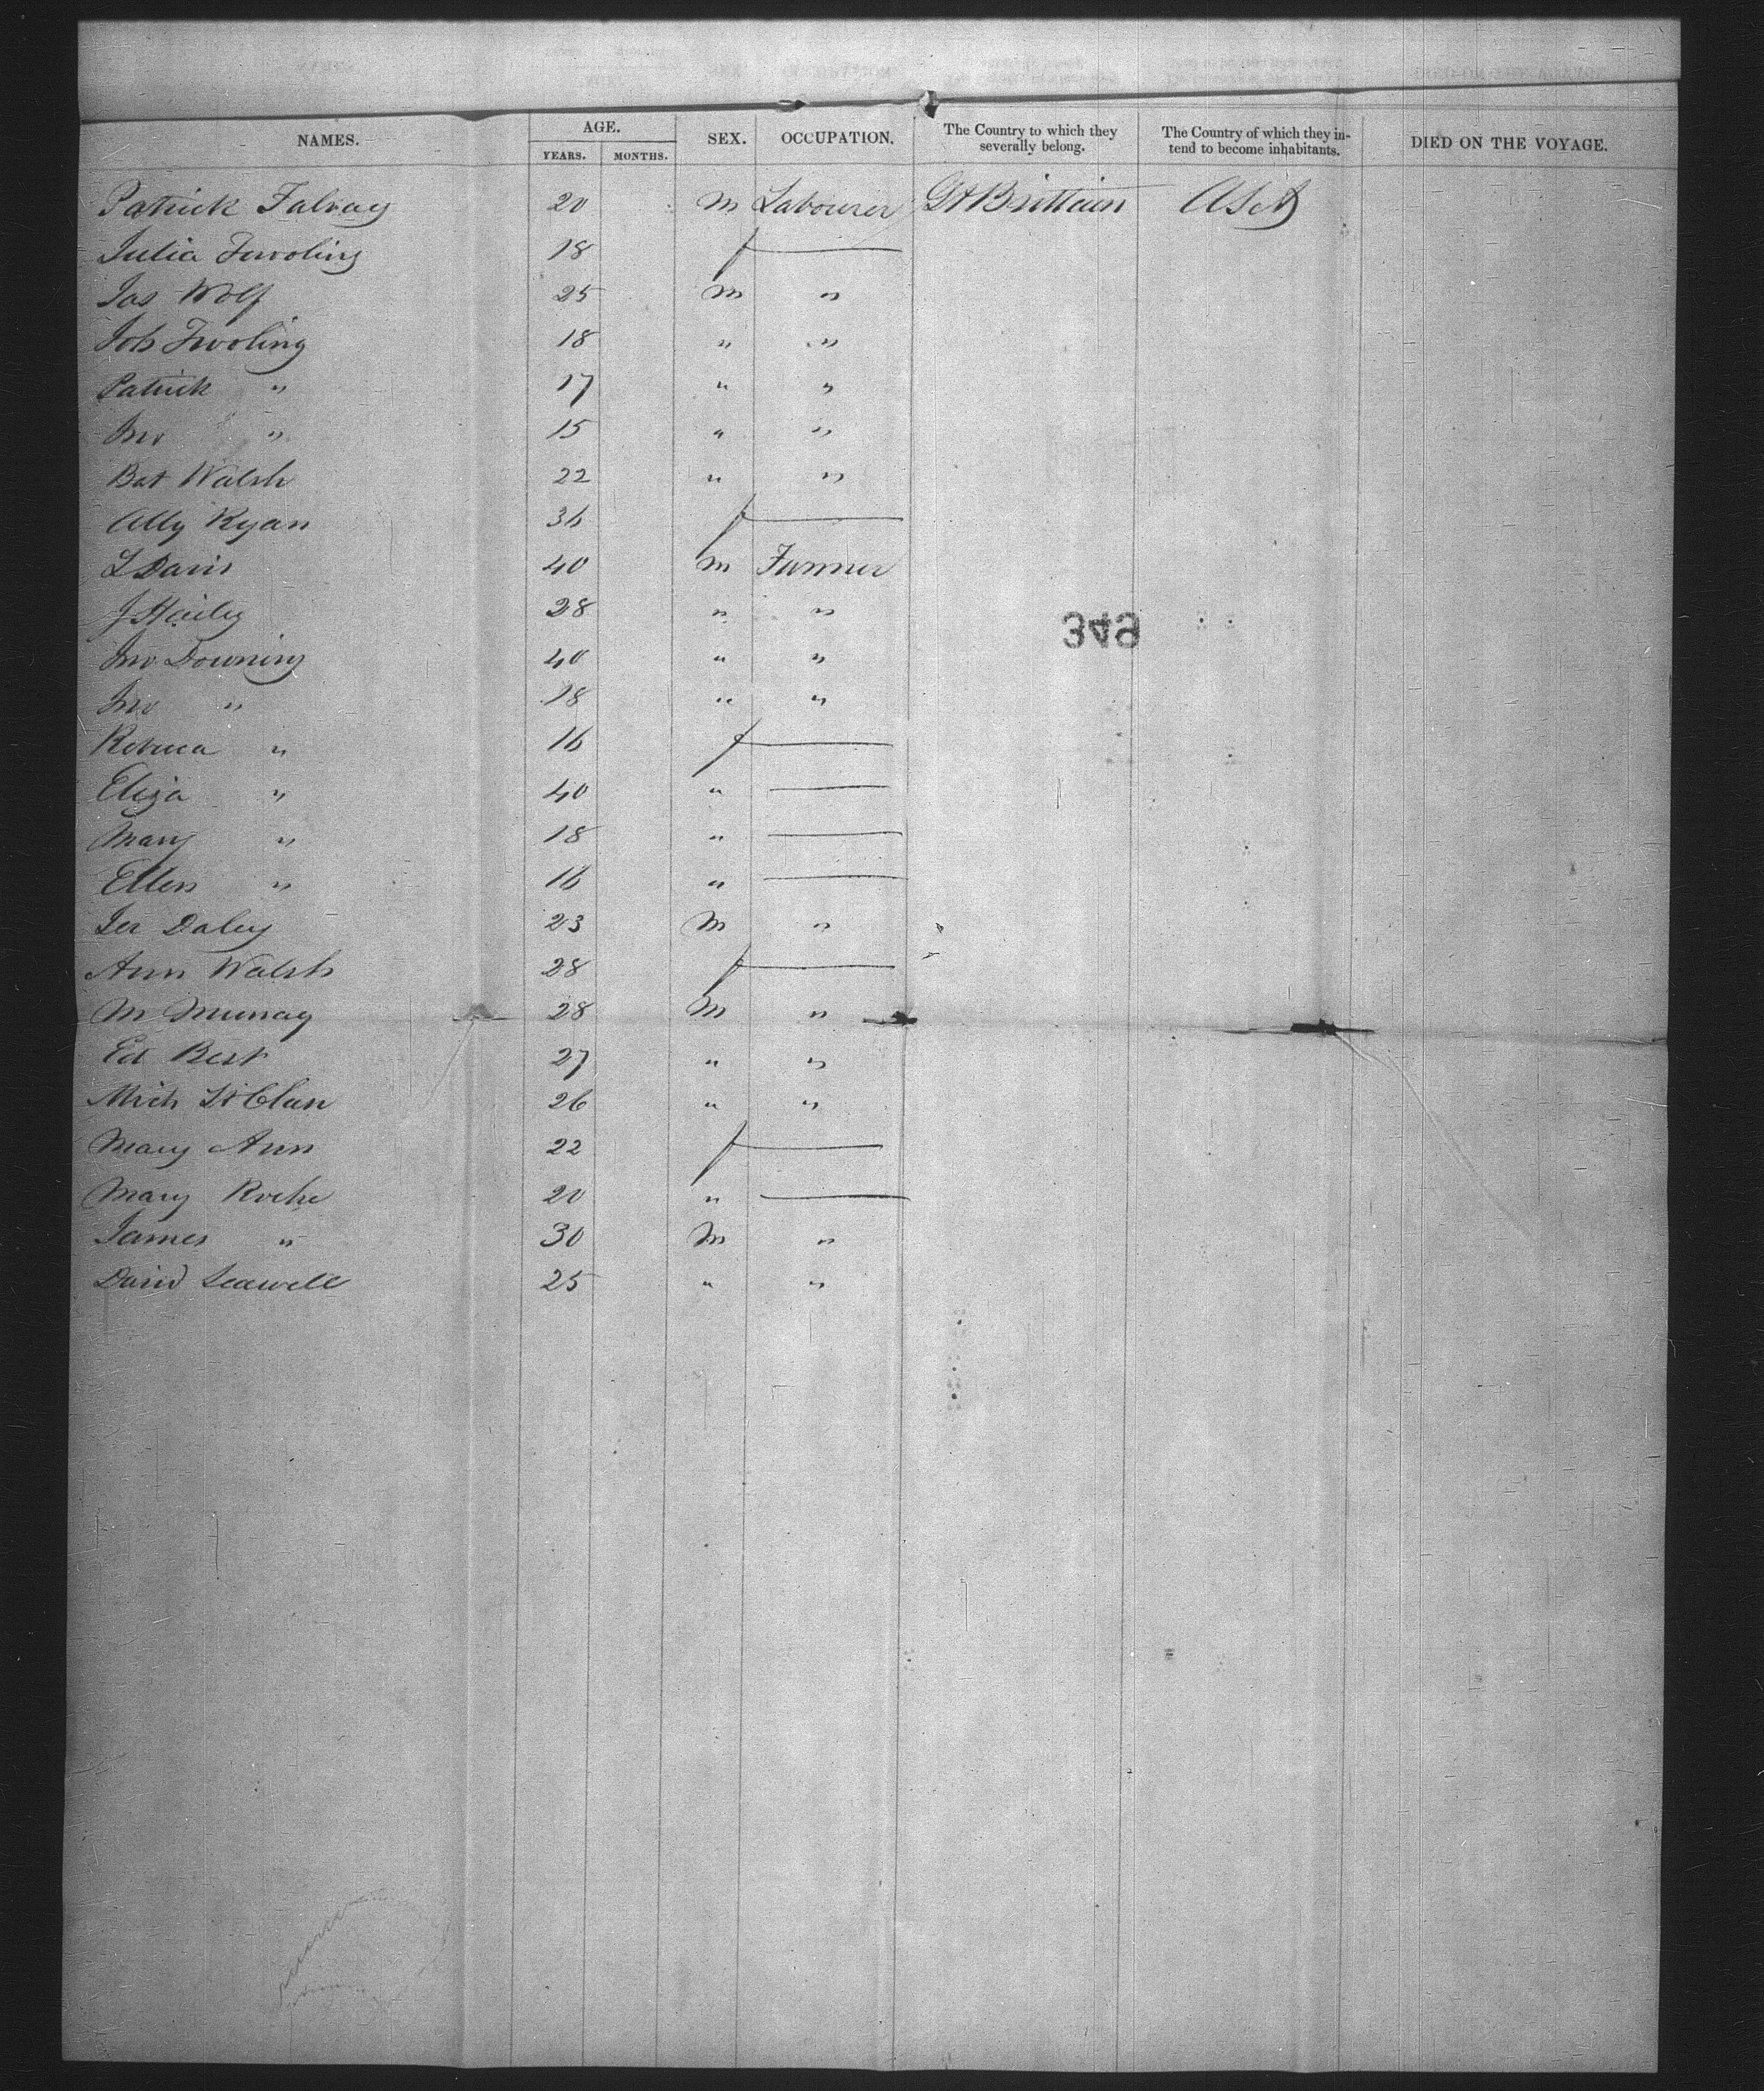 NAMES. AGE. YEARS. MONTHS. SEX. OCCUPATION. The Country to which they severally belong. The Country of which they intend to become inhabitants. DIED ON THE VOYAGE.
Patrick Falvay 20 m Labourer Gt Brittain USA
Julia Twoling 18 f
Jas Wolf 25 m "
Joh Twoling 18 " "
Patrick " 17 " "
Jno " 15 " "
Bat Walsh 22 " "
Ally Ryan 36 f
L Davis 40 m Farmer
J Haily 28 " "
Jno Downing 40 " "
Jno " 18 " "
Rebecca " 16 f
Eliza " 40 "
Mary " 18 "
Ellen " 16 "
Jer Daley 23 m "
Ann Walsh 28 f
M Murray 28 m "
Ed Best 27 " "
Mich St Clair 26 " "
Mary Ann 22 f
Mary Roche 20 "
James " 30 m "
David Leawell 25 " "
349